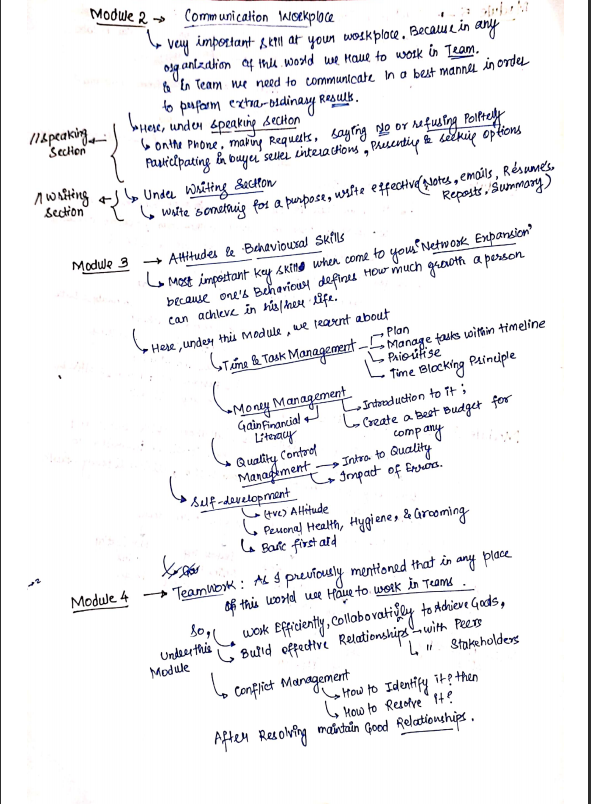 Module 2 → Communication Workplace
↳ very important skill at your workplace. Because in any
organization of this world we Have to work in Team.
& in Team we need to communicate In a best manner in order
to perform extra-ordinary Result.
↳ Here, under speaking section
//speaking Section
↳ on the Phone, making Requests, saying No or refusing Politely
Participating in buyer seller interactions, Presenting & seeking options
// writing Section
↳ Under Writing Section
↳ write something for a purpose, write effective (Notes, emails, Résumés,
Reports, Summary)
Module 3 → Attitudes & Behavioural Skills
↳ Most important key skills when come to your "Network Expansion"
because one's Behaviour defines How much growth a person
can achieve in his/her life.
↳ Here, under this Module, we learnt about
↳ Time & Task Management
→ Plan
→ Manage tasks within timeline
↳ Prioritise
↳ Time Blocking Principle
↳ Money Management
Gain Financial Literacy
↳ Introduction to it;
↳ Create a Best Budget for
company
↳ Quality Control
Management → Intro to Quality
↳ Impact of Errors.
↳ Self-development
↳ (+ve) Attitude
↳ Personal Health, Hygiene, & Grooming
↳ Basic first aid
Module 4 → TeamWork : As I previously mentioned that in any place
of this world we Have to work in Teams.
So, Under this Module
↳ work Efficiently, Collaboratively to Achieve Goals,
↳ Build effective Relationships → with Peers
↳ " Stakeholders
↳ Conflict Management
↳ How to Identify it? then
↳ How to Resolve it?
After Resolving maintain Good Relationships.